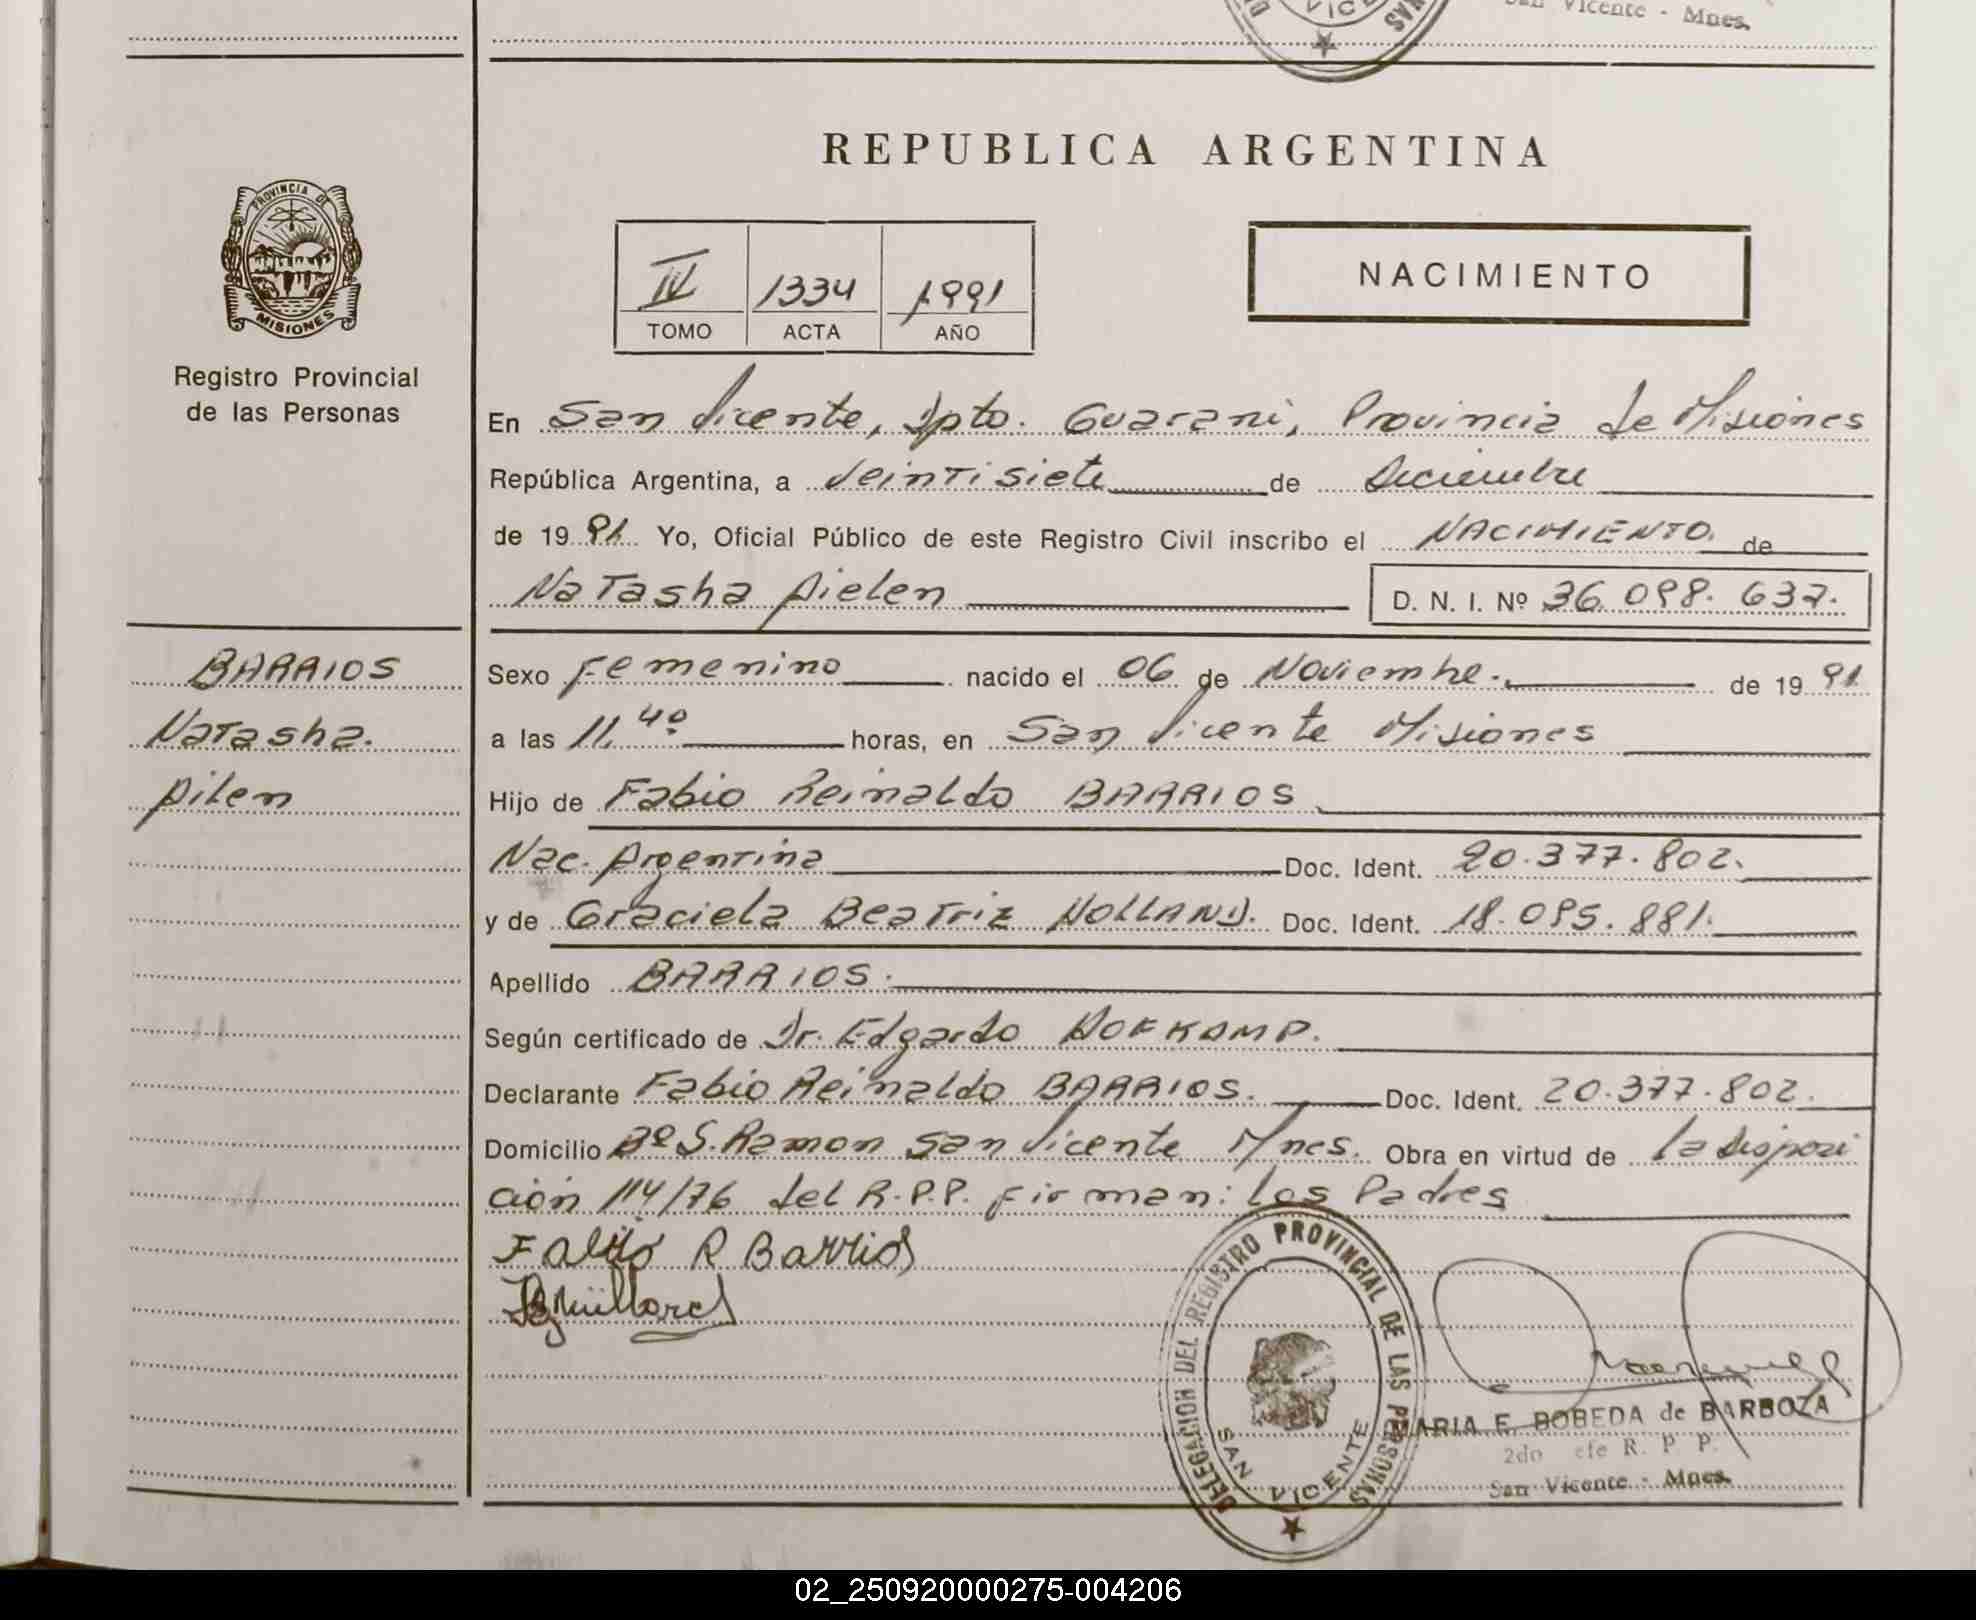 San Vicente - Mnes.
REPUBLICA ARGENTINA
PROVINCIA DE
MISIONES
Registro Provincial
de las Personas
IV 1334 1991
TOMO ACTA AÑO
NACIMIENTO
En San Vicente, Dpto. Guarani, Provincia de Misiones
República Argentina, a Veintisiete de Diciembre
de 19 91. Yo, Oficial Público de este Registro Civil inscribo el NACIMIENTO. de
Natasha Aielen D. N. I. Nº 36.098.637.
BARRIOS
Natasha.
Ailen
Sexo Femenino nacido el 06 de Noviembre. de 19 91.
a las 11.40 horas, en San Vicente Misiones
Hijo de Fabio Reinaldo BARRIOS
Nac. Argentina Doc. Ident. 20.377.802.
y de Graciela Beatriz HOLLAND. Doc. Ident. 18.095.881.
Apellido BARRIOS.
Según certificado de Dr. Edgardo HOFKAMP.
Declarante Fabio Reinaldo BARRIOS. Doc. Ident. 20.377.802.
Domicilio Bº S. Ramon San Vicente Mnes. Obra en virtud de la disposi
ción 114/76 del R.P.P. Firman: los Padres
Fabio R Barrios
DELEGACION DEL REGISTRO PROVINCIAL DE LAS PERSONAS
SAN VICENTE
MARIA E. BOBEDA de BARBOZA
2do efe R. P P.
San Vicente - Mnes.
02_250920000275-004206